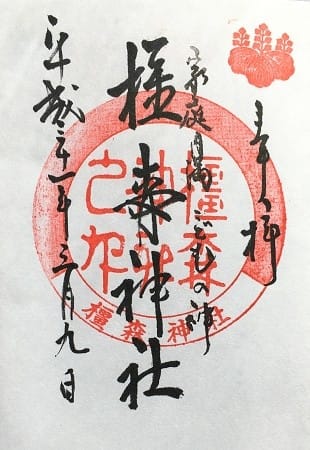 奉拝
家庭円満 こどもの神
橿森神社
平成三十一年三月九日
橿森神社